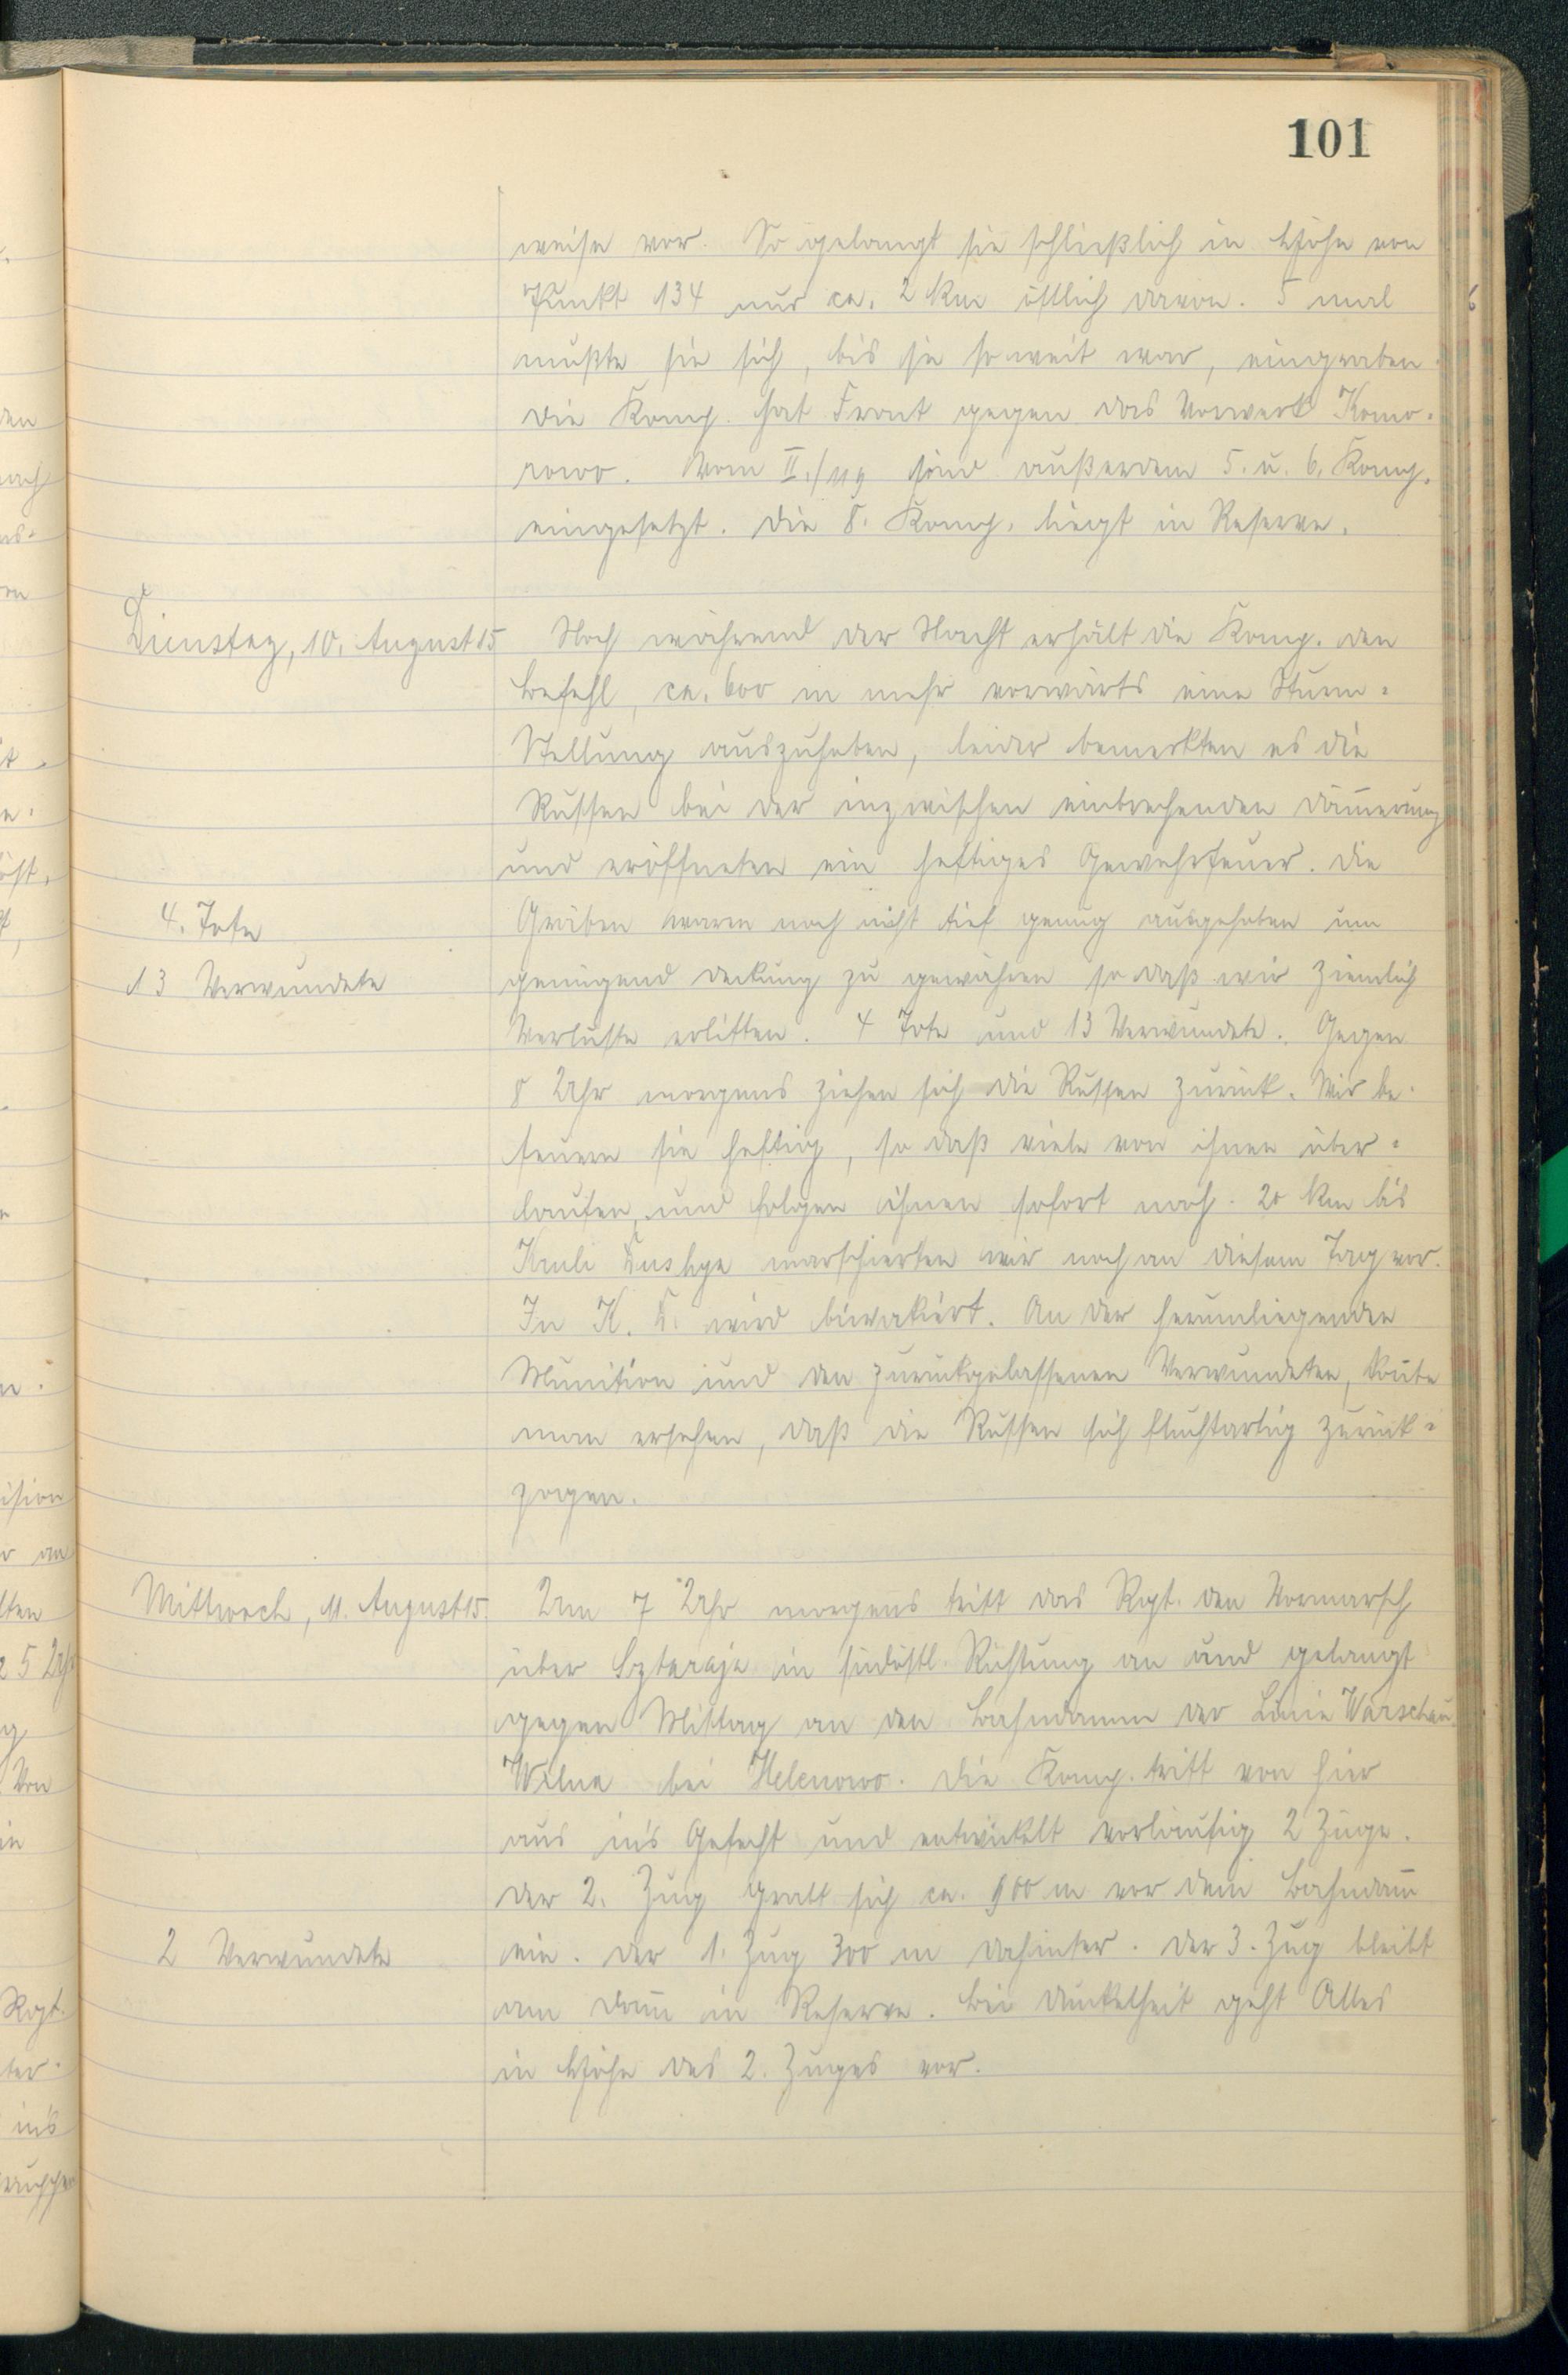 101
weise vor. So gelangt sie schließlich in Höhe von
Punkt 134 nur ca. 2 km östlich davon. 5 mal
mußte sie sich, bis sie so weit war, eingraben.
Die Komp. hat Front gegen das Vorwerk Komo-
rowo. Vom II./119 sind außerdem 5. u. 6. Komp.
eingesetzt. Die 8. Komp. liegt in Reserve.
Dienstag, 10. August 15
Noch während der Nacht erhält die Komp. den
Befehl, ca. 600 m mehr vorwärts eine Sturm-
Stellung auszuheben, leider bemerkten es die
Russen bei der inzwischen einbrechenden Dämerung
und eröffneten ein heftiges Gewehrfeuer. Die
4. Tote
Gräben waren noch nicht tief genug ausgehoben um
13 Verwundete
genügend Deckung zu gewähren so daß wir ziemlich
Verluste erlitten. 4 Tote und 13 Verwundete. Gegen
8 Uhr morgens ziehen sich die Russen zurück. Wir be-
feuern sie heftig, so daß viele von ihnen über-
laufen, und folgen ihnen sofort nach. 20 km bis
Kruli marschierten wir noch an diesem Tag vor.
In K. wird biwakiert. An der herumliegenden
Munition und den zurückgelassenen Verwundeten, konte
man ersehen, daß die Russen sich fluchtartig zurück-
zogen.
Mittwoch, 11. August 15.
Um 7 Uhr morgens tritt das Rgt. den Vormarsch
über in südöstl. Richtung an und gelangt
gegen Mittag an den Bahndamm der Linie Warschau
Wilna bei Helenowo. Die Komp. tritt von hier
aus ins Gefecht und entwickelt vorläufig 2 Züge.
Der 2. Zug grabt sich ca. 900 m vor dem Bahndam
2 Verwundete
ein. Der 1. Zug 300 m dahinter. Der 3. Zug bleibt
am Dam in Reserve. Bei Dunkelheit geht Alles
in Höhe des 2. Zuges vor.